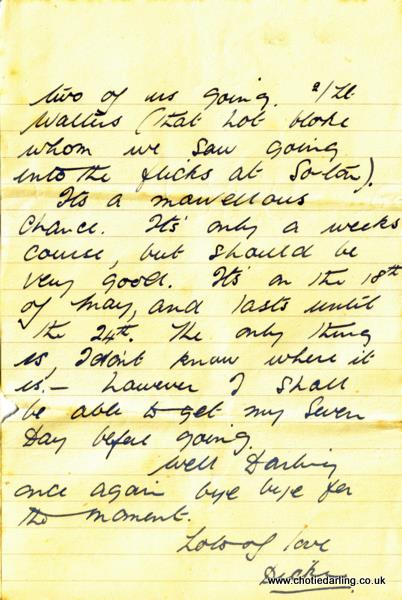 two of us going. 2/Lt
Walters (that hot bloke
whom we saw going
into the flicks at So'ton).
Its a marvellous
chance. It's only a weeks
course, but should be
very good. It's on the 18th
of May, and lasts until
the 24th. The only thing
is, I don't know where it
is. – however I shall
be able to get my Seven
Day before going.
Well Darling
once again bye bye for
the moment.
Lots of love
www.chotiedarling.co.uk